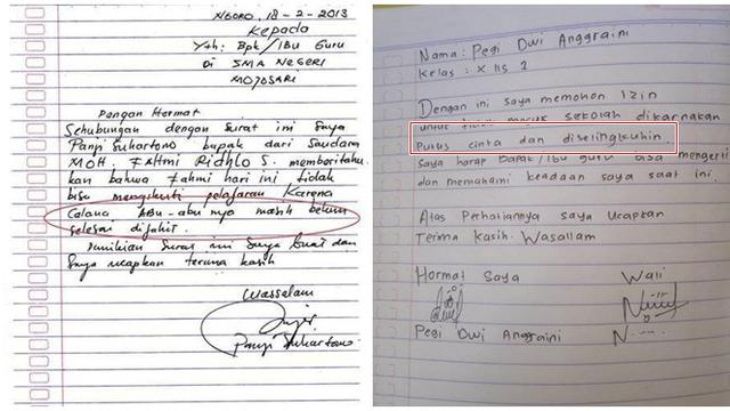 NGORO, 18 - 2 - 2013
Kepada
Yth: Bpk/IBU Guru
Di SMA NEGERI
MOJOSARI
Dengan Hormat
Sehubungan dengan surat ini Saya
Panji Suhartono bapak dari Saudara
MOH. FAHmi Ridhlo S. memberitahu
kan bahwa Fahmi hari ini tidak
bisa mengikuti pelajaran Karena
Celana ABU-abu nya masih belum
selesai dijahit.
Demikian Surat ini Saya buat dan
Saya ucapkan terima kasih
Wassalam
Panji Suhartono
Nama: Pegi Dwi Anggraini
Kelas : X IIS 2
Dengan ini saya memohon Izin
untuk tidak masuk sekolah dikarnakan
Putus cinta dan diselingkuhin.
Saya harap Bapak/Ibu guru bisa mengerti
dan memahami keadaan saya saat ini.
Atas Perhatiannya saya Ucapkan
Terima Kasih. Wasallam
Hormat Saya Wali
Pegi Dwi Anggraini N